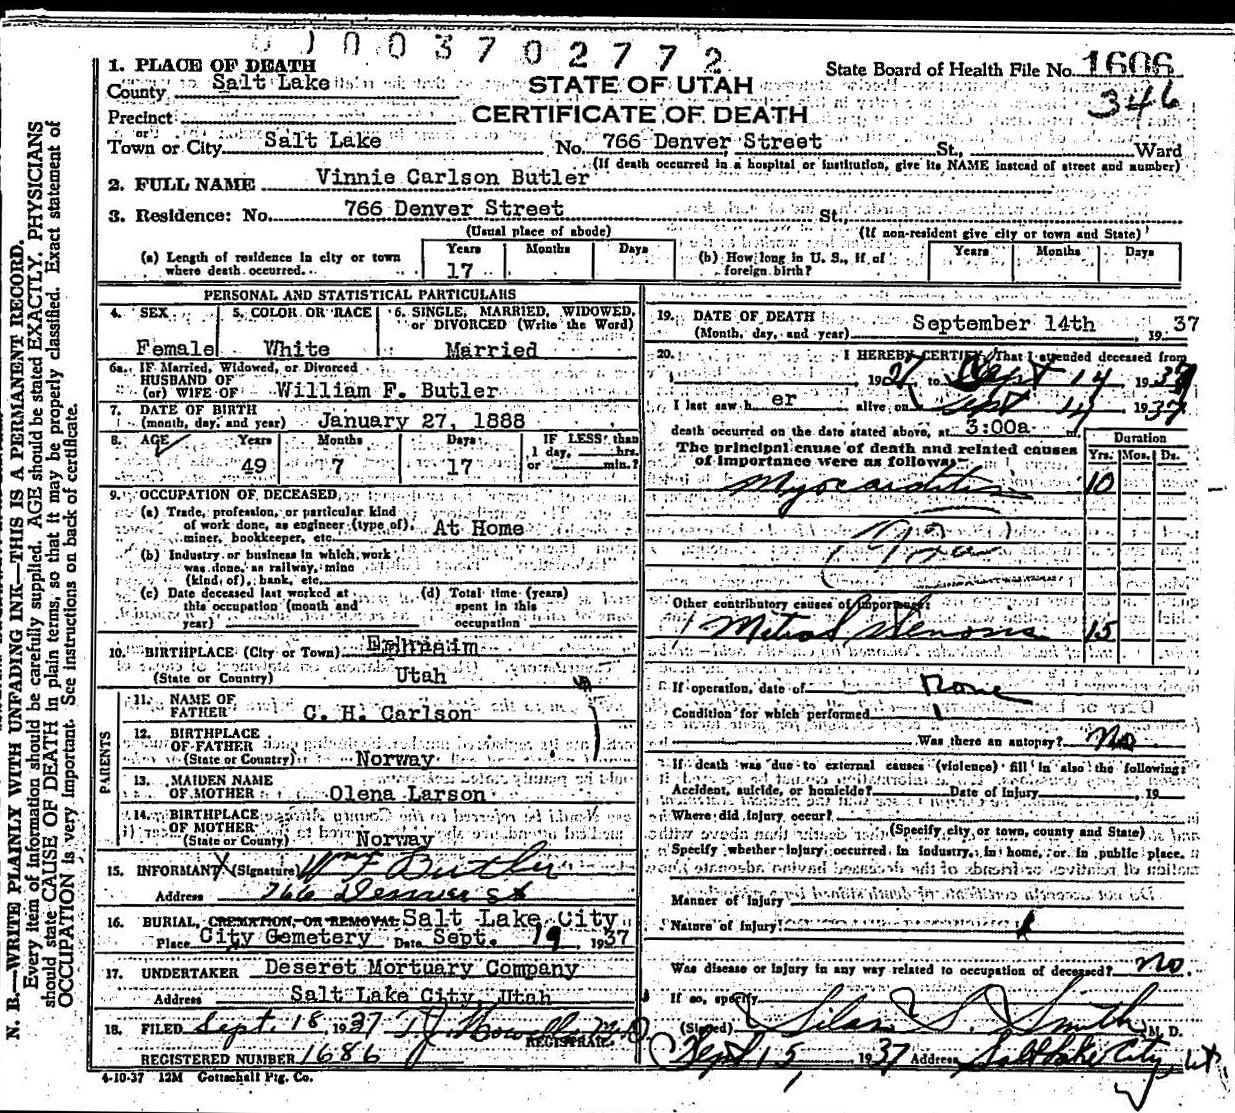 0 1 0 0 3 7 0 2 7 7 2
1. PLACE OF DEATH
County Salt Lake
STATE OF UTAH
State Board of Health File No. 1606
346
Precinct
CERTIFICATE OF DEATH
or
Town or City Salt Lake No. 766 Denver Street St., Ward
(If death occurred in a hospital or institution, give its NAME instead of street and number)
2. FULL NAME Vinnie Carlson Butler
3. Residence: No. 766 Denver Street St.,
(Usual place of abode)
(If non-resident give city or town and State)
(a) Length of residence in city or town where death occurred. Years 17 Months Days
(b) How long in U. S., if of foreign birth? Years Months Days
PERSONAL AND STATISTICAL PARTICULARS
4. SEX Female
5. COLOR OR RACE White
6. SINGLE, MARRIED, WIDOWED, or DIVORCED (Write the Word) Married
6a. IF Married, Widowed, or Divorced
HUSBAND OF
(or) WIFE OF William F. Butler
7. DATE OF BIRTH
(month, day, and year) January 27, 1888
8. AGE Years 49 Months 7 Days 17 IF LESS than 1 day, hrs. or min.?
9. OCCUPATION OF DECEASED
(a) Trade, profession, or particular kind
of work done, as engineer (type of),
miner, bookkeeper, etc. At Home
(b) Industry or business in which work
was done, as railway, mine
(kind of), bank, etc.
(c) Date deceased last worked at
this occupation (month and
year)
(d) Total time (years)
spent in this
occupation
10. BIRTHPLACE (City or Town) Ephraim
(State or Country) Utah
PARENTS
11. NAME OF
FATHER C. H. Carlson
12. BIRTHPLACE
OF FATHER
(State or Country) Norway
13. MAIDEN NAME
OF MOTHER Olena Larson
14. BIRTHPLACE
OF MOTHER
(State or County) Norway
15. INFORMANT X (Signature) Wm F Butler
Address 766 Denver St
16. BURIAL, CREMATION, OR REMOVAL Salt Lake City
Place City Cemetery Date Sept. 19 1937
17. UNDERTAKER Deseret Mortuary Company
Address Salt Lake City, Utah
18. FILED Sept. 18 1937 T. J. Howells M.D.
REGISTRAR.
REGISTERED NUMBER 1686
4-10-37 12M Gottschall Ptg. Co.
19. DATE OF DEATH
(Month, day, and year) September 14th 19 37
20. I HEREBY CERTIFY, That I attended deceased from
1927 to Sept 14 1937
I last saw h er alive on Sept 14 1937
death occurred on the date stated above, at 3:00a m
The principal cause of death and related causes
of importance were as follows:
Duration
Yrs. Mos. Ds.
Myocarditis 10
Other contributory causes of importance:
Mitral Stenosis 15
If operation, date of None
Condition for which performed
Was there an autopsy? No
If death was due to external causes (violence) fill in also the following:
Accident, suicide, or homicide? Date of injury 19
Where did injury occur?
(Specify city or town, county and State)
Specify whether injury occurred in industry, in home, or in public place.
Manner of injury
Nature of injury
Was disease or injury in any way related to occupation of deceased? No.
If so, specify
(Signed) Silas S. Smith M. D.
Sept 15 1937 Address Salt Lake City, Ut
N. B.—WRITE PLAINLY WITH UNFADING INK—THIS IS A PERMANENT RECORD.
Every item of information should be carefully supplied. AGE should be stated EXACTLY. PHYSICIANS
should state CAUSE OF DEATH in plain terms, so that it may be properly classified. Exact statement of
OCCUPATION is very important. See instructions on back of certificate.